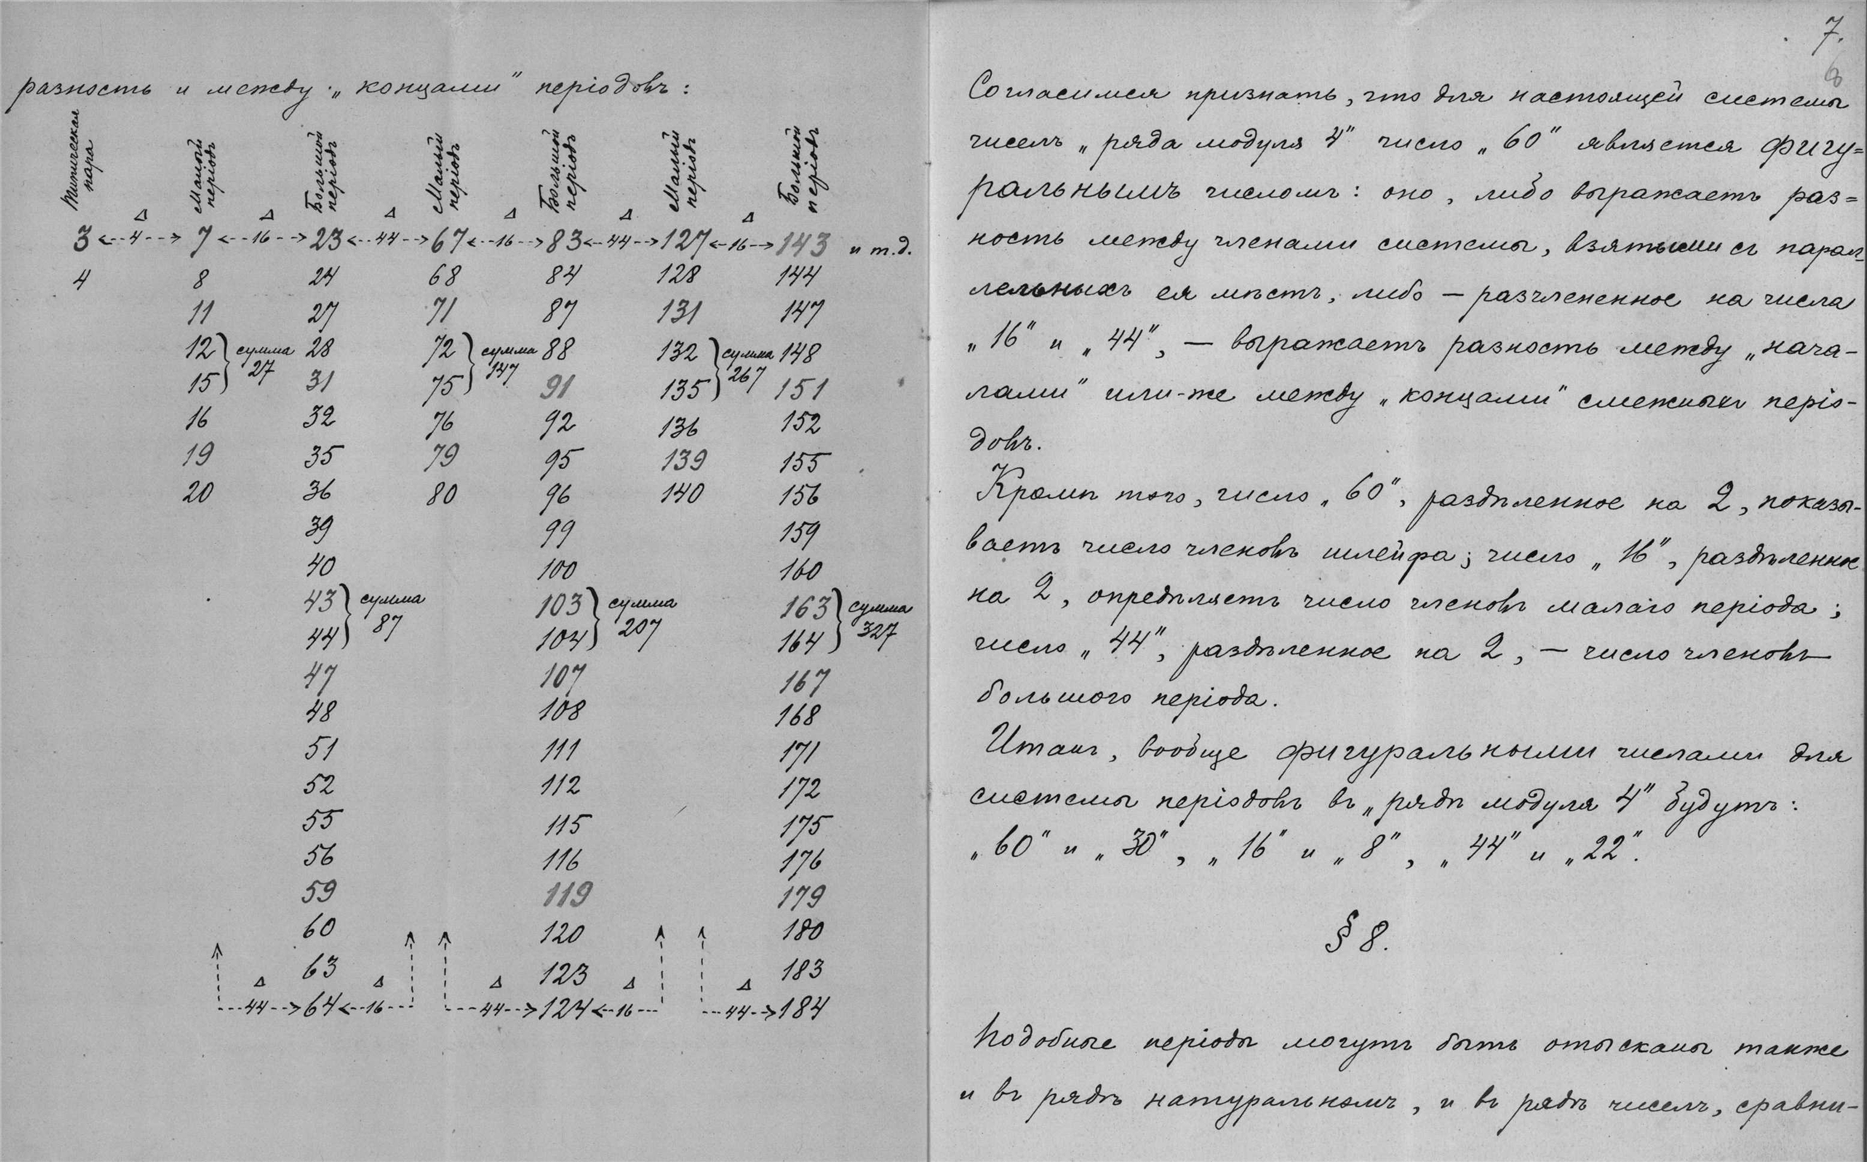 разность и между „концами" періодовъ:
Типическая пара
Малый періодъ
Большой періодъ
Малый періодъ
Большой періодъ
Малый періодъ
Большой періодъ
Δ Δ Δ Δ Δ Δ
3 <--4--> 7 <--16--> 23 <--44--> 67 <--16--> 83 <--44--> 127 <--16--> 143 и т.д.
4 8 24 68 84 128 144
11 27 71 87 131 147
12 сумма 28 72 сумма 88 132 сумма 148
15 27 31 75 147 91 135 267 151
16 32 76 92 136 152
19 35 79 95 139 155
20 36 80 96 140 156
39 99 159
40 100 160
43 сумма 103 сумма 163 сумма
44 87 104 207 164 327
47 107 167
48 108 168
51 111 171
52 112 172
55 115 175
56 116 176
59 119 179
60 120 180
63 123 183
Δ Δ Δ Δ Δ
44--> 64 <--16 44--> 124 <--16 44--> 184
7.
8
Согласимся признать, что для настоящей системы
чиселъ „ряда модуля 4" число „60" является фигу=
ральнымъ числомъ: оно, либо выражаетъ раз=
ность между членами системы, взятыми съ парал=
лельныхъ ея мѣстъ, либо — разчлененное на числа
„16" и „44", — выражаетъ разность между „нача-
лами" или-же между „концами" смежныхъ періо-
довъ.
Кромѣ того, число „60", раздѣленное на 2, показы-
ваетъ число членовъ шлейфа; число „16", раздѣленное
на 2, опредѣляетъ число членовъ малаго періода;
число „44", раздѣленное на 2, — число членовъ
большого періода.
Итакъ, вообще фигуральными числами для
системы періодовъ въ „рядѣ модуля 4" будутъ:
„60" и „30", „16" и „8", „44" и „22".
§ 8.
Подобные періоды могутъ быть отысканы также
и въ рядѣ натуральномъ, и въ рядѣ чиселъ, сравни-